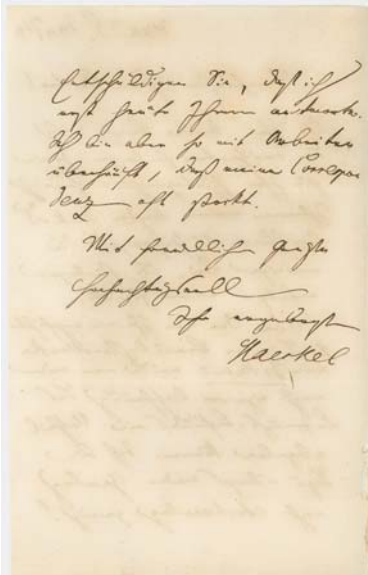 Entschuldigen Sie, daß ich
erst heute Ihnen antworte.
Ich bin aber so mit Arbeiten
überhäuft, daß meine Correspon
denz oft stockt.
Mit freundlichen Grüßen
hochachtungsvoll
Ihr ergebenster
Haeckel